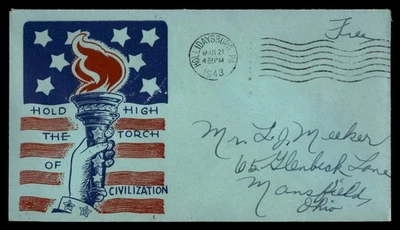 HOLD HIGH
THE TORCH
OF
CIVILIZATION
HOLLIDAYSBURG, PA.
MAR 21
4 PM
1943
Free
Mr. L. J. Meeker
65 Glenbeck Lane
Mansfield,
Ohio